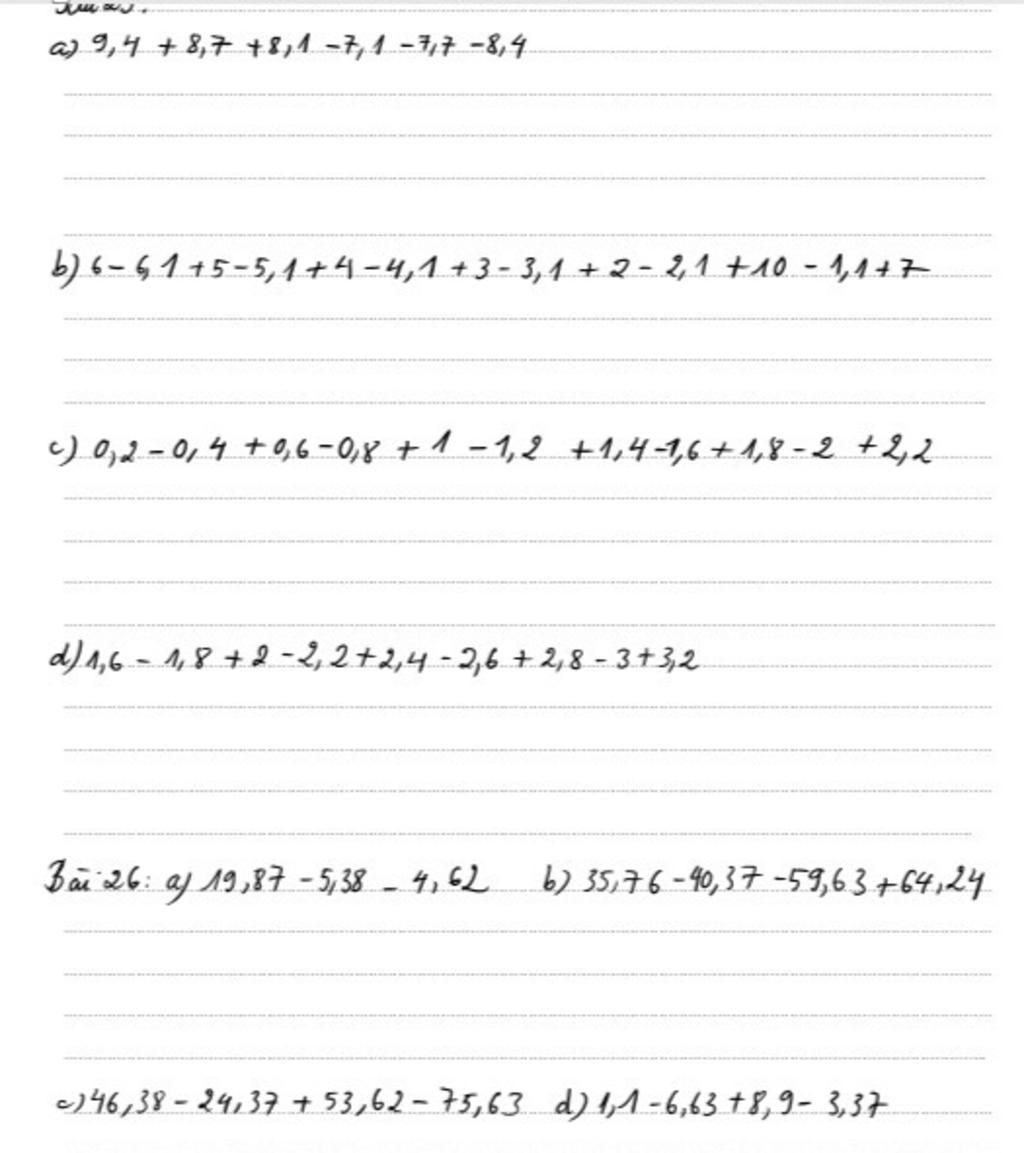 a) 9,4 + 8,7 + 8,1 - 7,1 - 7,7 - 8,4
b) 6 - 6,1 + 5 - 5,1 + 4 - 4,1 + 3 - 3,1 + 2 - 2,1 + 10 - 1,1 + 7
c) 0,2 - 0,4 + 0,6 - 0,8 + 1 - 1,2 + 1,4 - 1,6 + 1,8 - 2 + 2,2
d) 1,6 - 1,8 + 2 - 2,2 + 2,4 - 2,6 + 2,8 - 3 + 3,2
Bài 26: a) 19,87 - 5,38 - 4,62 b) 35,76 - 40,37 - 59,63 + 64,24
c) 46,38 - 24,37 + 53,62 - 75,63 d) 1,1 - 6,63 + 8,9 - 3,37